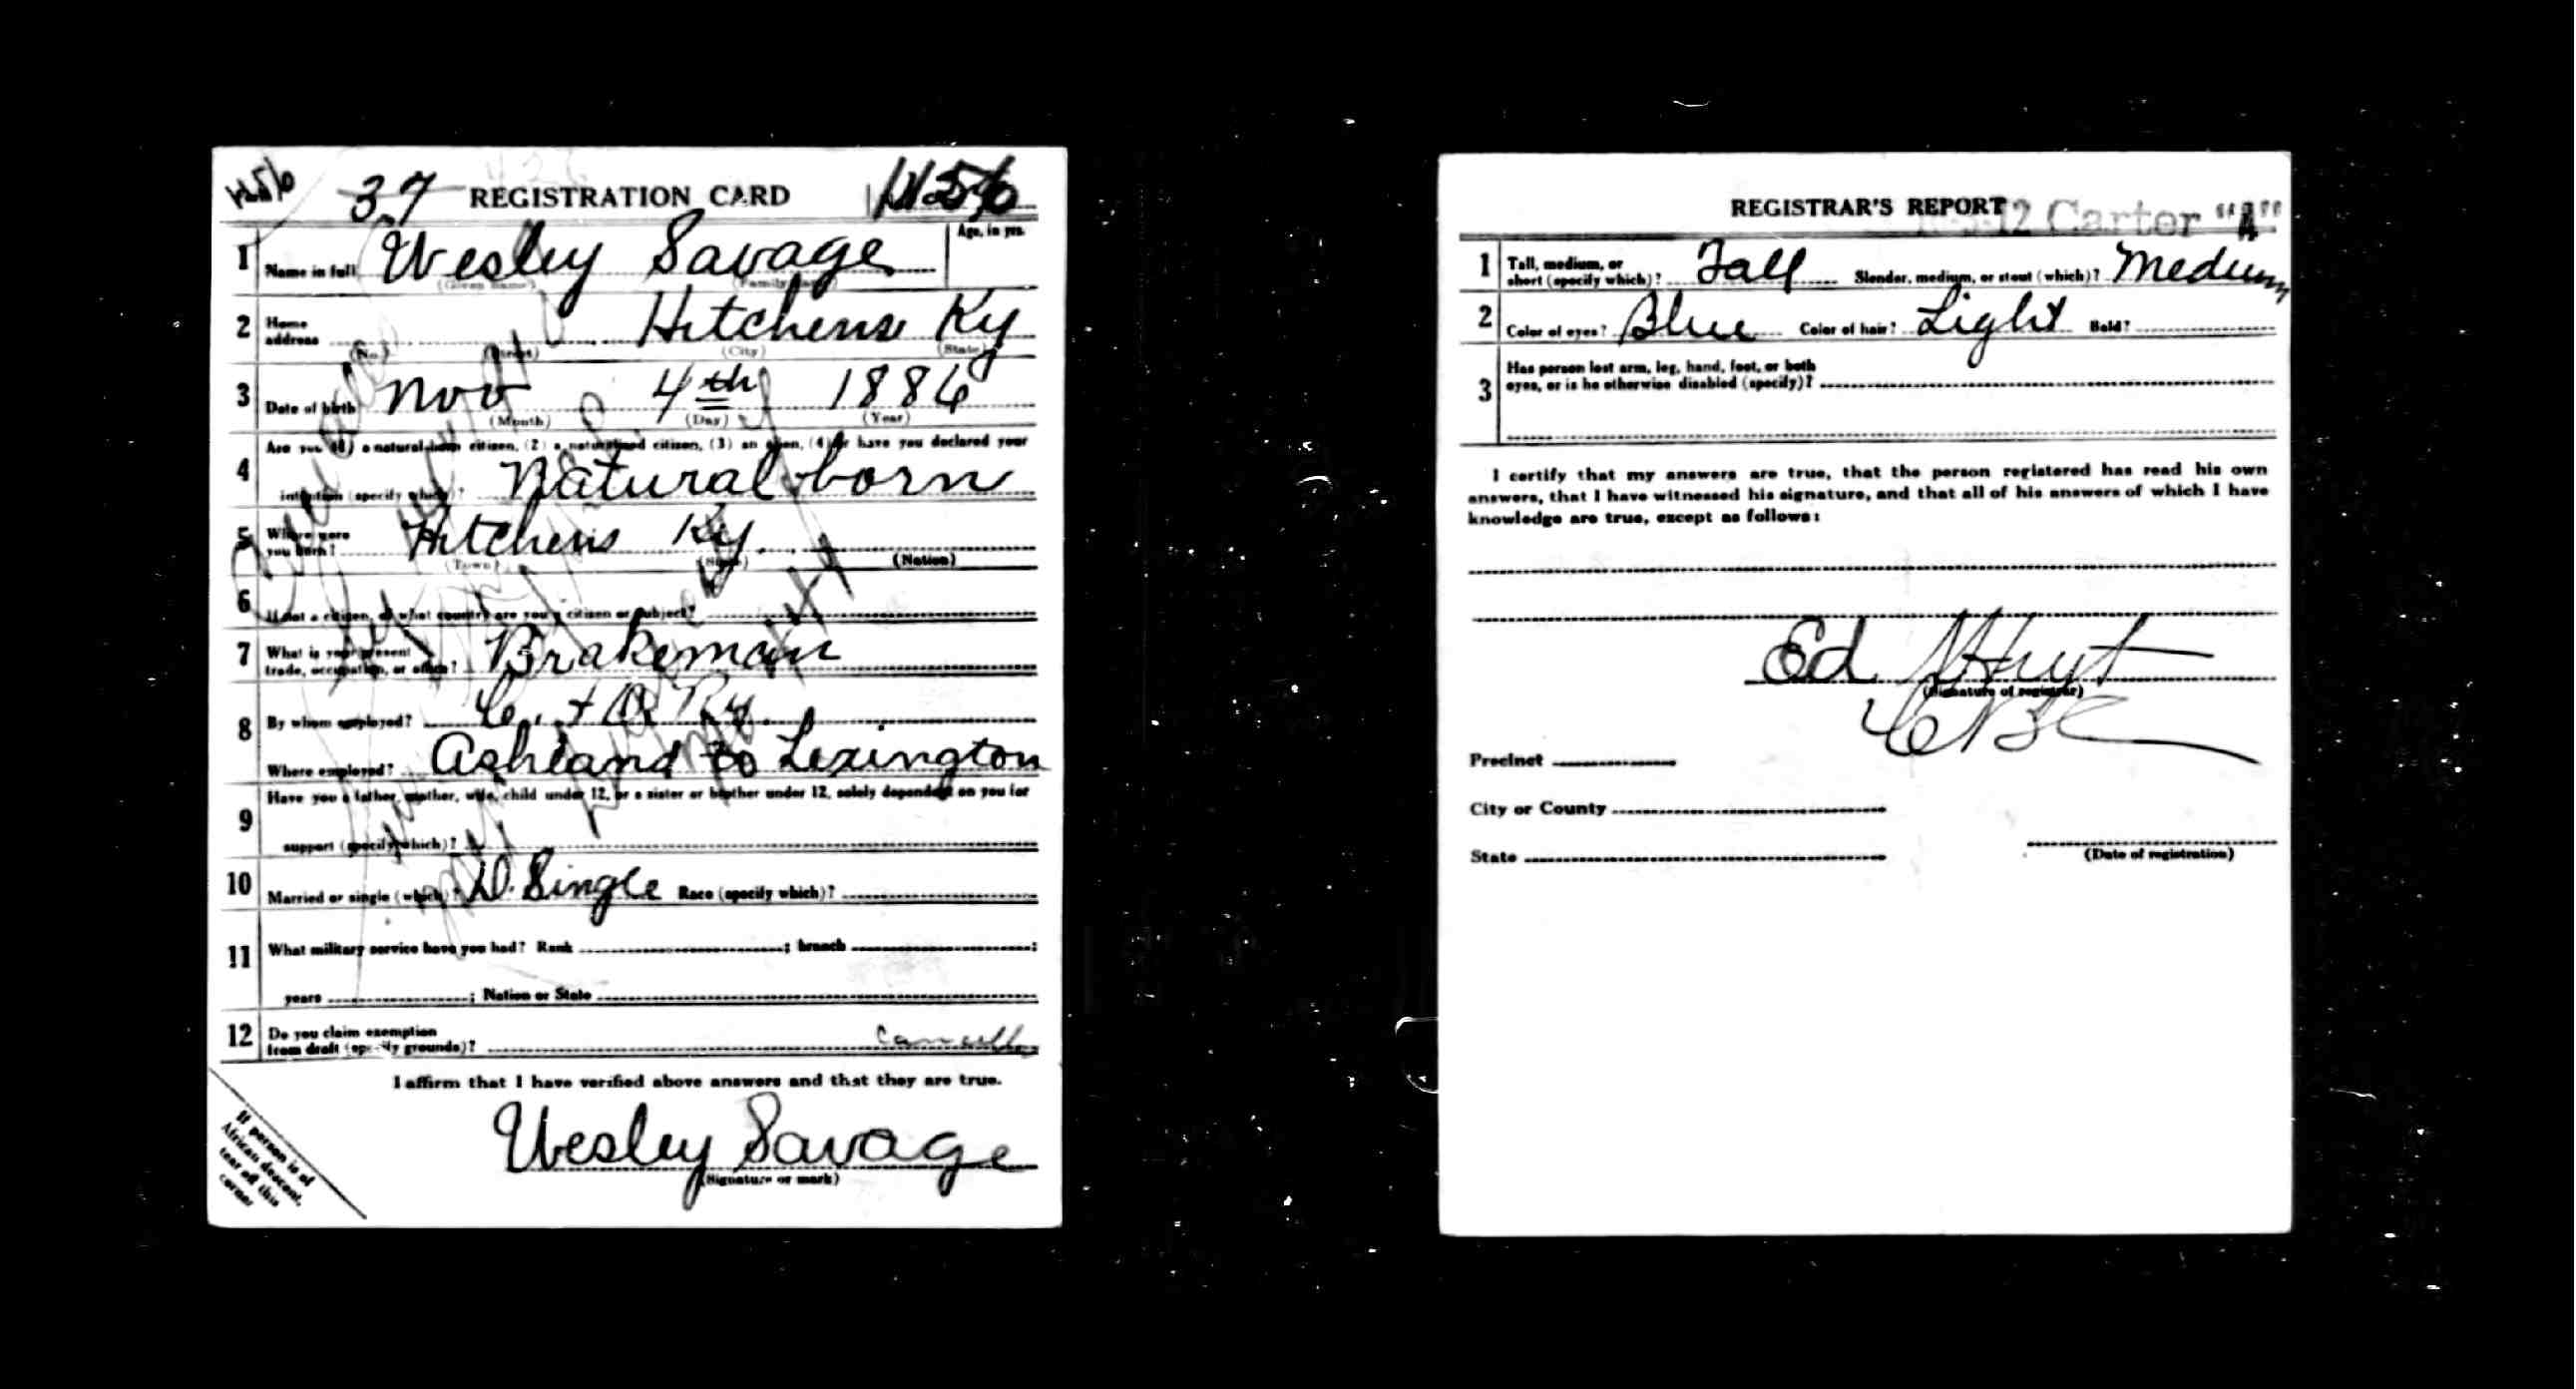 37 REGISTRATION CARD
Age, in yrs.
1 Name in full Wesley Savage
(Given name) (Family name)
2 Home address Hitchens Ky
(No.) (Street) (City) (State)
3 Date of birth Nov 4th 1886
(Month) (Day) (Year)
4 Are you (1) a natural-born citizen, (2) a naturalized citizen, (3) an alien, (4) or have you declared your
intention (specify which)? Natural born
5 Where were you born? Hitchens Ky.
(Town) (State) (Nation)
6 If not a citizen, of what country are you a citizen or subject?
7 What is your present trade, occupation, or office? Brakeman
8 By whom employed? C. + O Ry.
Where employed? Ashland to Lexington
9 Have you a father, mother, wife, child under 12, or a sister or brother under 12, solely dependent on you for
support (specify which)?
10 Married or single (which)? D. Single Race (specify which)?
11 What military service have you had? Rank ; branch ;
years ; Nation or State
12 Do you claim exemption
from draft (specify grounds)?
I affirm that I have verified above answers and that they are true.
Wesley Savage
(Signature or mark)
If person is of
African descent,
tear off this
corner
REGISTRAR'S REPORT
12 Carter "A"
1 Tall, medium, or
short (specify which)? Tall Slender, medium, or stout (which)? Medium
2 Color of eyes? Blue Color of hair? Light Bald?
3 Has person lost arm, leg, hand, foot, or both
eyes, or is he otherwise disabled (specify)?
I certify that my answers are true, that the person registered has read his own
answers, that I have witnessed his signature, and that all of his answers of which I have
knowledge are true, except as follows:
Ed
(Signature of registrar)
Precinct
City or County
State
(Date of registration)